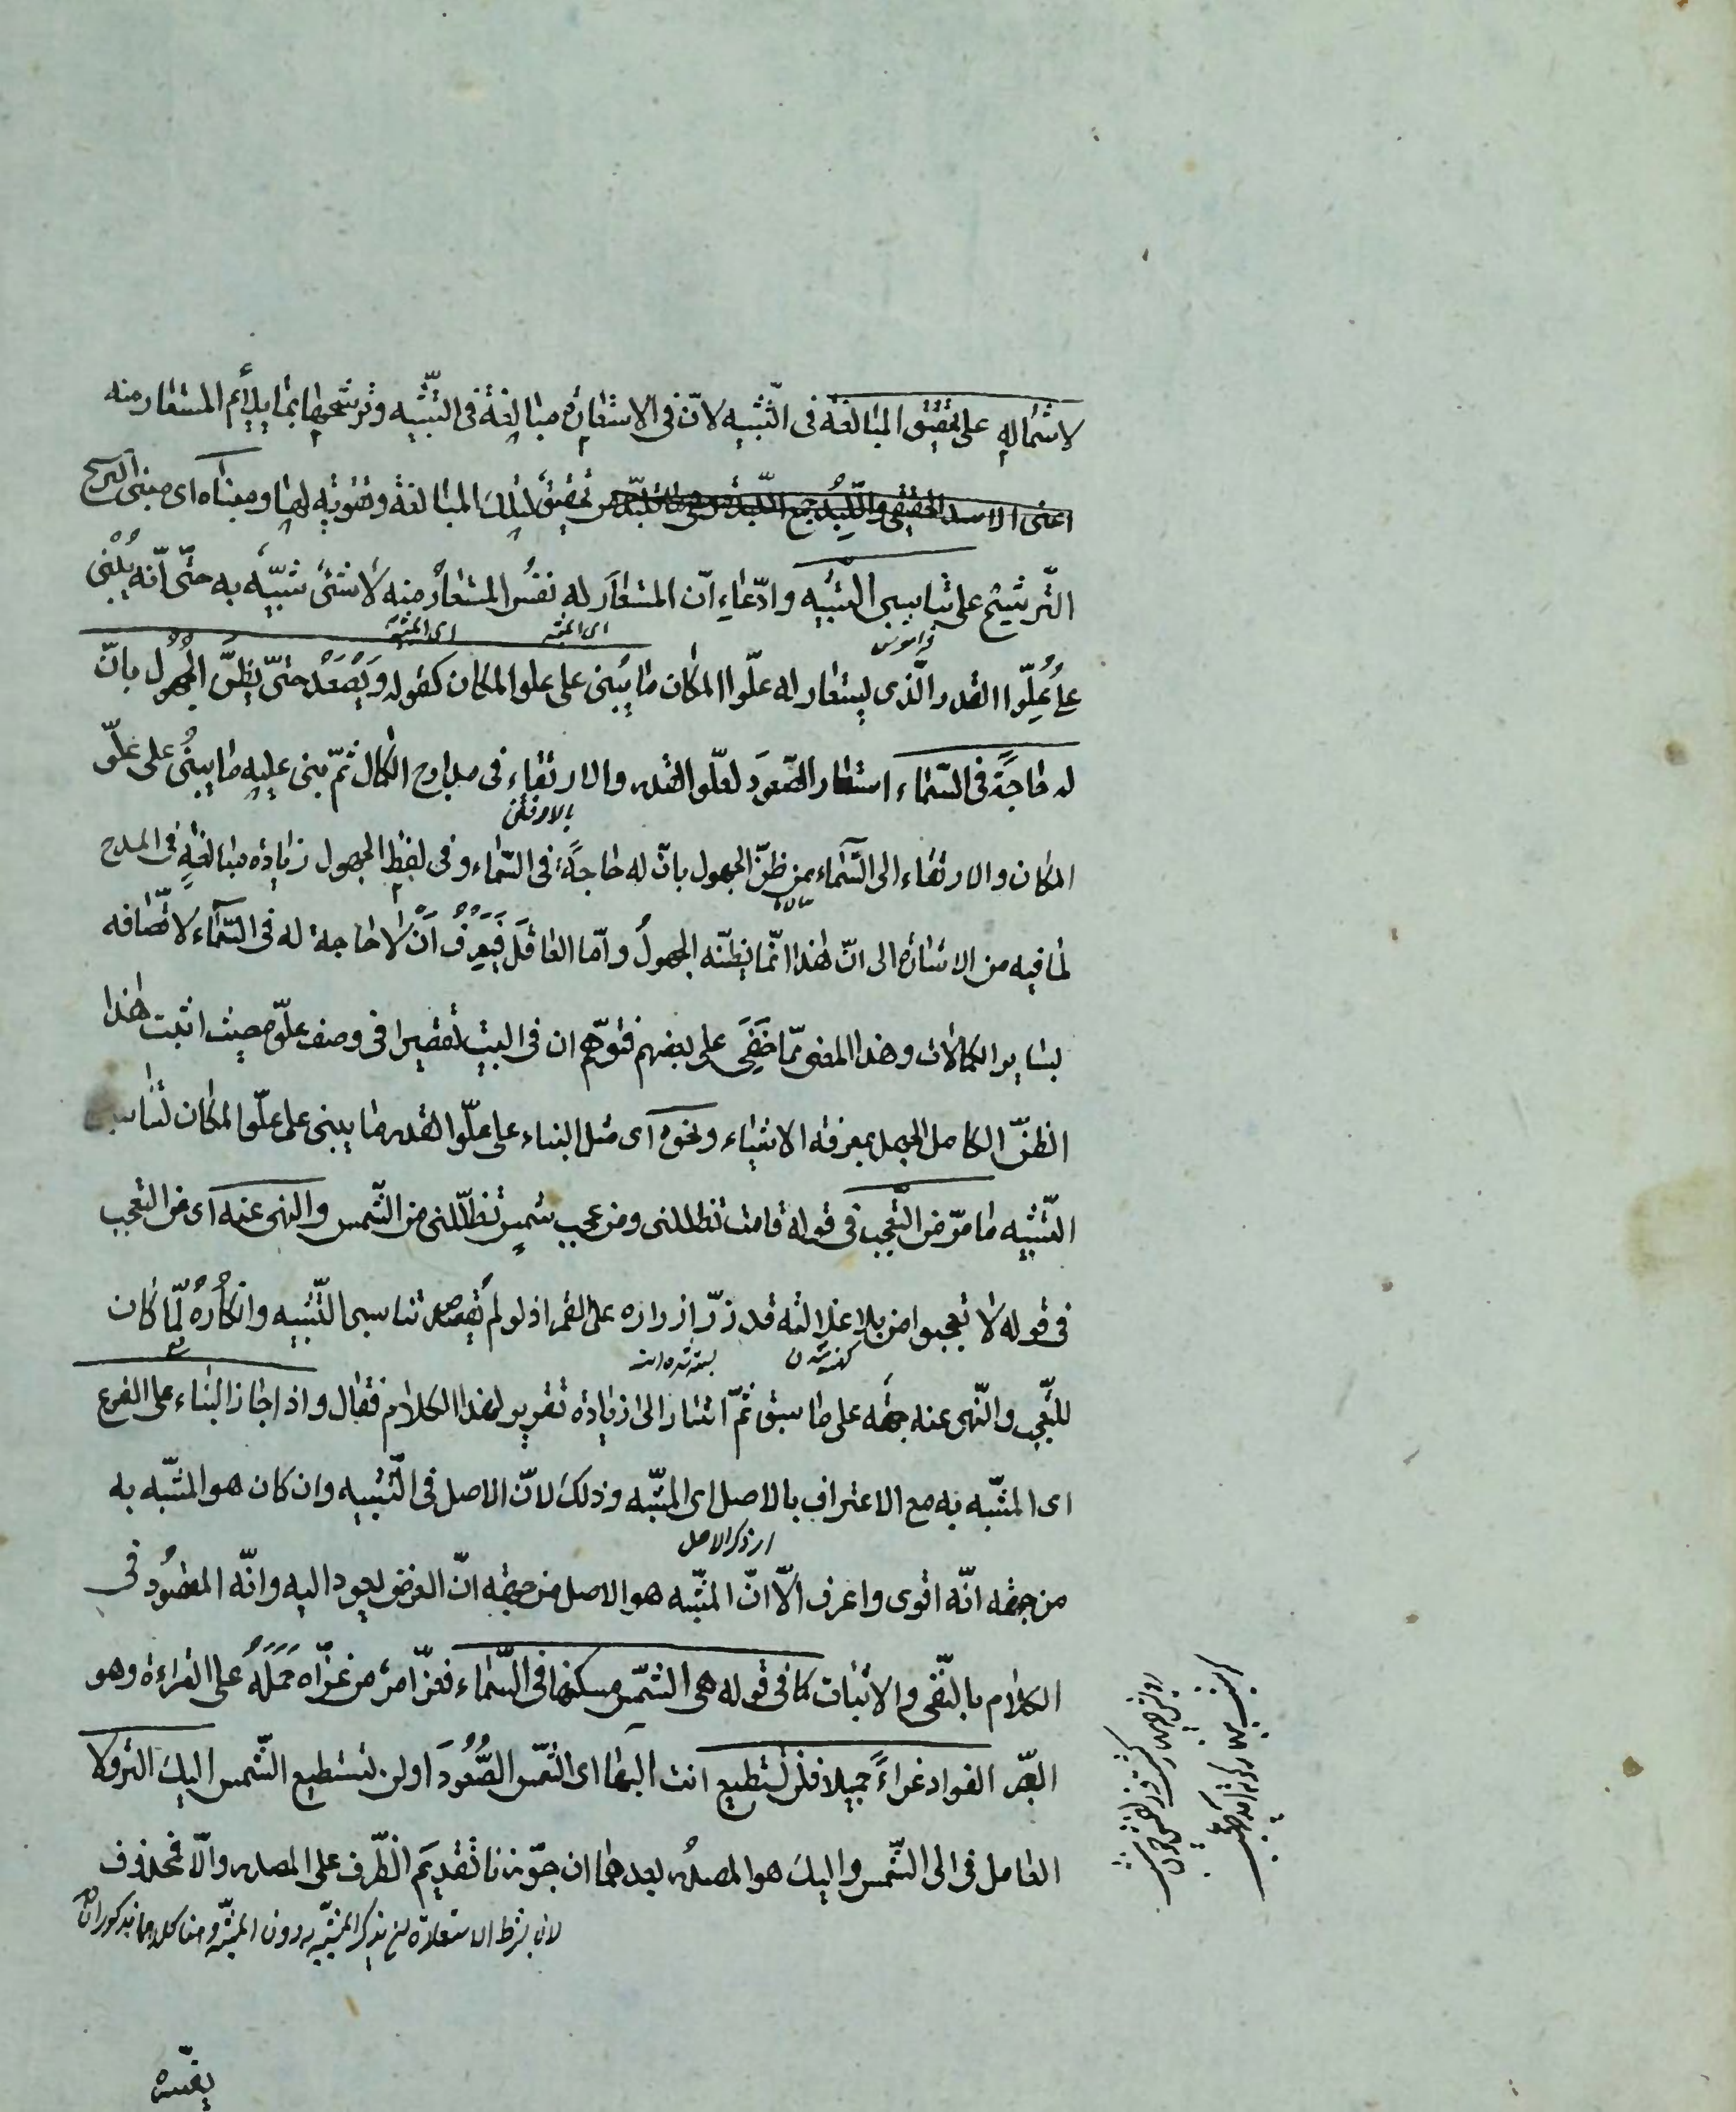 لاشتماله على تحقيق المبالغة فى التشبيه لانّ فى الاستعارة مبالغة فى التشبيه وترشيحها بما يلائم المستعار منه
اعنى الاسد الحقيقى واللّبد جمع اللبدة تحقيق لتلك المبالغة وتقوية لها ومبناه اى مبنى الترشيح
التّرشيح على تناسى التشبيه وادّعاء انّ المستعار له نفسُ المستعار منه لا شئ شبيه به حتّى انّه يُبْنى
اى المشبه
اى المشبه به
فراموش
على عُلوّ القدر الّذى يستعار له علّو المكان ما يُبنى على علو المكان كقوله وَيَصْعَدُ حتىّ يظنّ الجَهُول بانّ
له حاجَةً فى السّماء استعار الصّعودَ لعلّو القدر والارتقاء فى مدارج الكمال ثمّ بنى عليه ما يبنُى على علوّ
بالا رفتن
المكان والارتقاء الى السّماء من ظنّ الجهول بانّ له حاجةً فى السّماء وفى لفظ الجهول زيادة مبالغةٍ فى المدح
لما فيه من الاشارة الى انّ هذا انّما يظنّه الجهولُ وامّا العاقل فَيَعْرِفُ اَنْ لا حاجة له فى السّماء لاتّصافه
بسائر الكمالات وهذا المعنى ممّا خَفِىَ على بعضهم فتوهّم ان فى البيت تقصيرا فى وصف علوّه حيث اثبت هذا
الظنّ الكامل الجهل بمعرفة الاشياء ونحوه اى مثل البناء على علّو القدر ما يبنى على علّو المكان لتناسى
التّشبيه ما مرّ من التّعجب فى قوله قامت تظللنى ومن عجب شمس تظلّلنى من الشّمس والنهى عنه اى من التعجب
فى قوله لا تعجبوا من بلا غلالته قد زرّ ازراره على القمر اذ لو لم يُقصد تناسى التّشبيه وانكارُهُ لمّا كان
كهنه شدن
بسته شده است
للتعّجب والنّهى عنه جهة على ما سبق ثمّ اشار الى زيادة تقرير لهذا الكلام فقال واذا جاز البناء على الفرع
اى المشبّه به مع الاعتراف بالاصل اى المشبّه وذلك لانّ الاصل فى التّشبيه وان كان هو المشبّه به
اى ذكر الاصل
من جهة انّه اقوى واعرف الاّ انّ المشبّه هو الاصل من جهة انّ الغرض يعود اليه وانّه المقصُود فى
الكلام بالنّفى والاثبات كما فى قوله هى الشّمس مسكنها فى السّماء فعزّ امر من عزّاه حَمَلَهُ على العزاء وهو
الصّبر الفواد عزاءً جميلا فلن تستطيع انت اليها اى الشّمس الصُّعُودَ ولن تستطيع الشّمس اليك النزولا
العامل فى الى الشّمس واليك هو المصدُر بعدهما ان جوّزنا تقديَم الظّرف على المصدر والاّ فمحذوف
لان شرط الاستعارة ان يذكر المشبّه به دون المشبّه وهنا كلاهما مذكوران
يفسّره